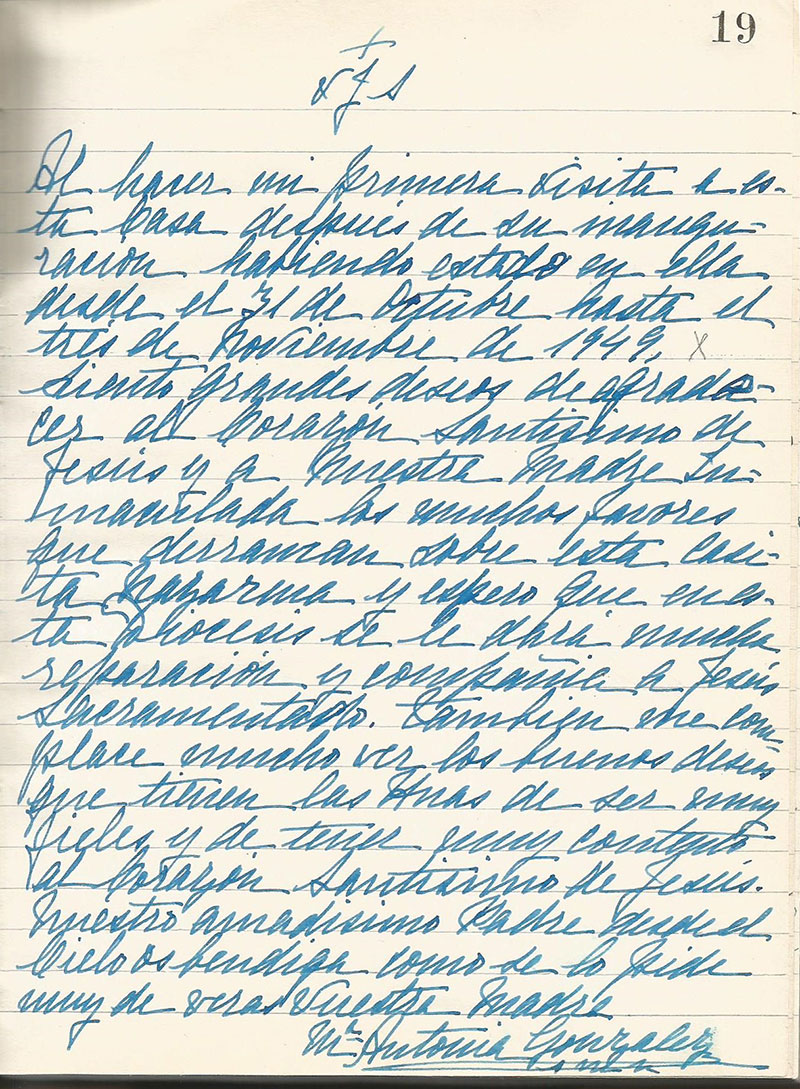 19
+
V J S
Al hacer mi primera visita a es-
ta Casa después de su inaugu-
ración habiendo estado en ella
desde el 31 de Octubre hasta el
trés de Noviembre de 1949, X
siento grandes deseos de agrade-
cer al Corazón Santísimo de
Jesús y a Nuestra Madre In-
maculada los muchos favores
que derraman sobre esta Casi-
ta Nazarena y espero que en es-
ta Diocesis se le dará mucha
reparación y compañia a Jesús
Sacramentado. Tambien me com-
place mucho ver los buenos deseos
que tienen las Hnas de ser muy
fieles y de tener muy contento
al Corazón Santísimo de Jesús.
Nuestro amadisimo Padre desde el
Cielo os bendiga como se lo pide
muy de veras Vuestra Madre
Mª Antonia González